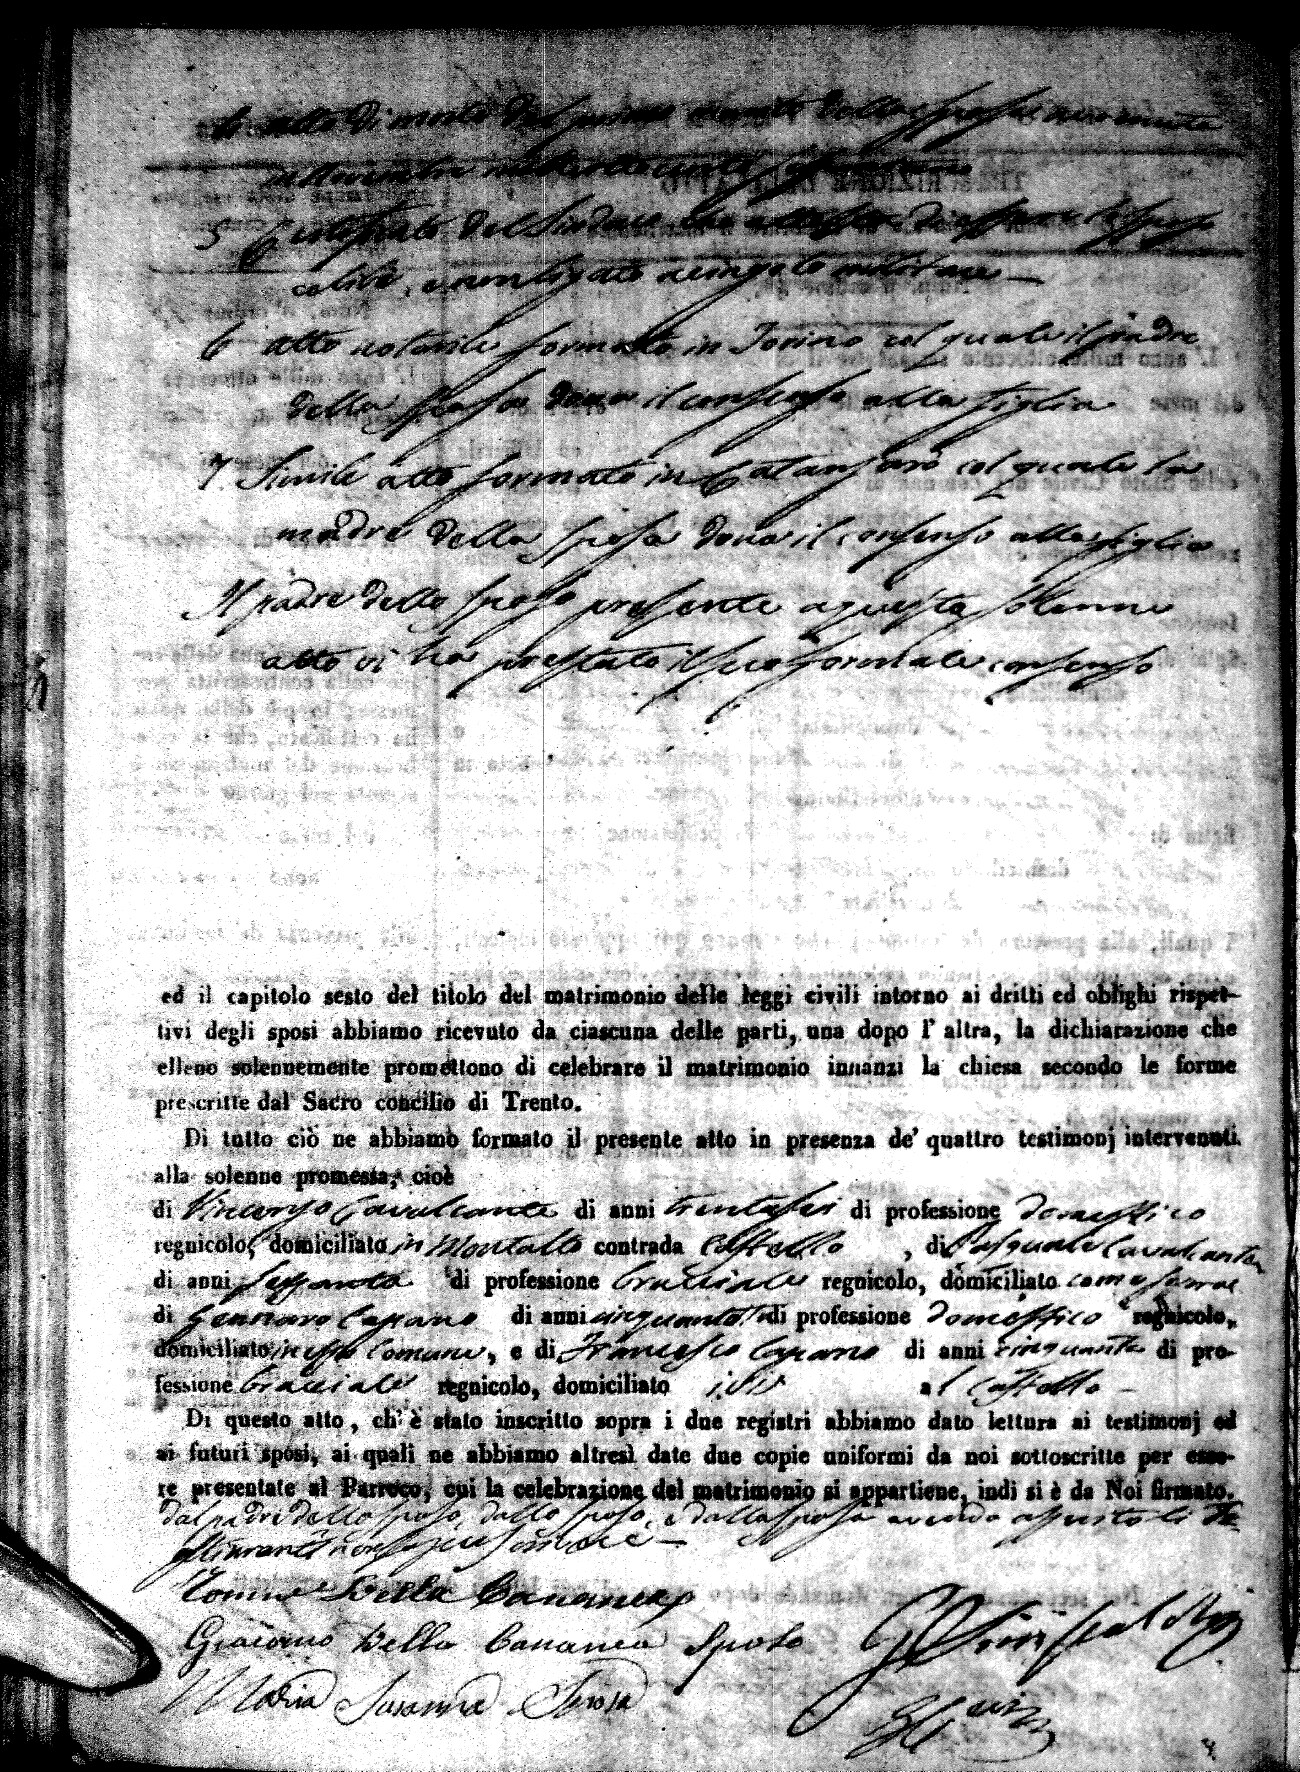 atto di morte del primo marito della sposa avvenuta
in Novembre mille ottocento
5 Certificato del Sindaco che attesta di essere lo sposo
celibe, e non ligato a congedo militare —
6 atto notarile formato in Torino col quale il padre
della sposa dona il consenso alla figlia
7 Simile atto formato in Catanzaro col quale la
madre della sposa dona il consenso alla figlia
Il padre dello sposo presente a questo solenne
atto vi ha prestato il suo formale consenso
ed il capitolo sesto del titolo del matrimonio delle leggi civili intorno ai dritti ed obblighi rispet-
tivi degli sposi abbiamo ricevuto da ciascuna delle parti, una dopo l' altra, la dichiarazione che
elleno solennemente promettono di celebrare il matrimonio innanzi la chiesa secondo le forme
prescritte dal Sacro concilio di Trento.
Di tutto ciò ne abbiamo formato il presente atto in presenza de' quattro testimonj intervenuti
alla solenne promessa, cioè
di Vincenzo Cavalcante di anni trentasei di professione domestico
regnicolo, domiciliato in Montalto contrada Castello , di Pasquale Cavalcante
di anni sessanta di professione bracciale regnicolo, domiciliato come sopra
di Gennaro Capano di anni cinquanta di professione domestico regnicolo,
domiciliato in esso Comune, e di Francesco Capano di anni cinquanta di pro-
fessione bracciale regnicolo, domiciliato ivi al Castello —
Di questo atto, ch' è stato inscritto sopra i due registri abbiamo dato lettura ai testimonj ed
ai futuri sposi, ai quali ne abbiamo altresì date due copie uniformi da noi sottoscritte per esse-
re presentate al Parroco, cui la celebrazione del matrimonio si appartiene, indi si è da Noi firmato.
dal padre dello sposo, dallo sposo, e dalla sposa avendo asserito li te-
stimonanti non sapere scrivere —
Della Cananea
Giacomo Della Cananea Sposo
Maria Susanna Sposa